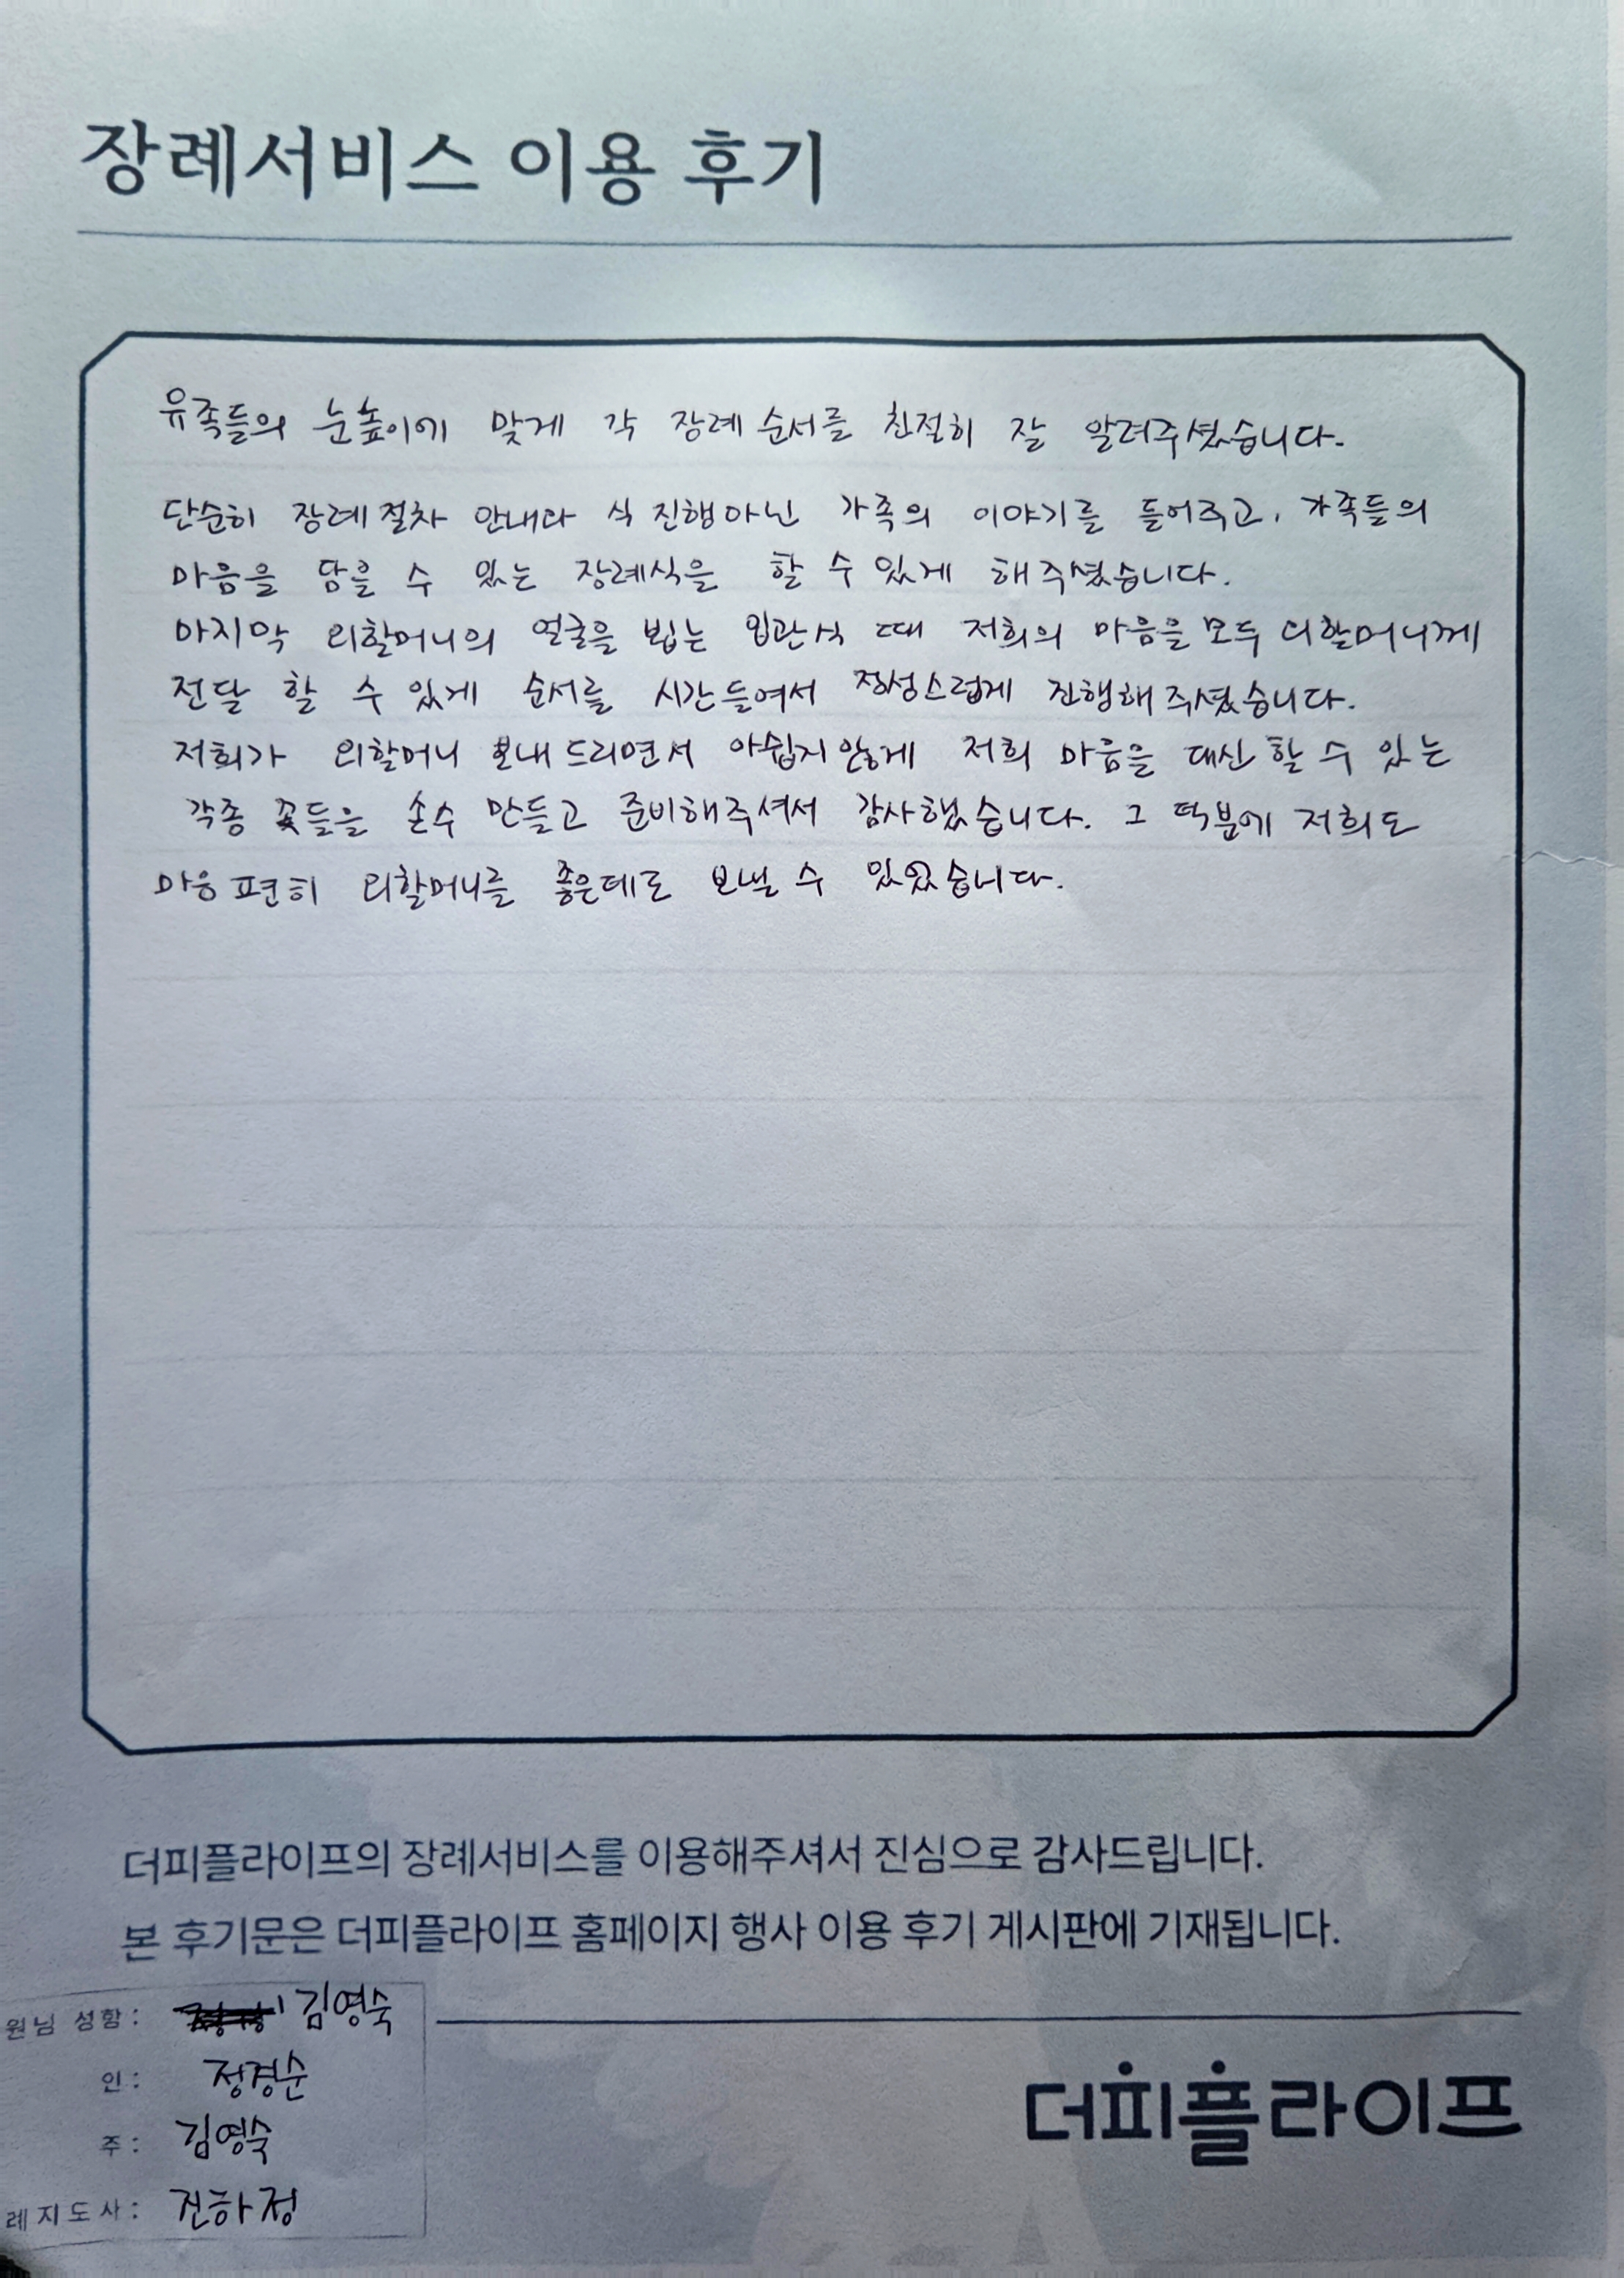 장례서비스 이용 후기
유족들의 눈높이에 맞게 각 장례 순서를 친절히 잘 알려주셨습니다.
단순히 장례절차 안내와 식 진행아닌 가족의 이야기를 들어주고, 가족들의
마음을 담을 수 있는 장례식을 할 수 있게 해주셨습니다.
마지막 외할머니의 얼굴을 뵙는 입관식 때 저희의 마음을 모두 외할머니께
전달 할 수 있게 순서를 시간들여서 정성스럽게 진행해 주셨습니다.
저희가 외할머니 보내 드리면서 아쉽지않게 저희 마음을 대신 할 수 있는
각종 꽃들을 손수 만들고 준비해주셔서 감사했습니다. 그 덕분에 저희도
마음 편히 외할머니를 좋은데로 보낼 수 있었습니다.
더피플라이프의 장례서비스를 이용해주셔서 진심으로 감사드립니다.
본 후기문은 더피플라이프 홈페이지 행사 이용 후기 게시판에 기재됩니다.
원님 성함: 김영숙
인: 정경순
주: 김영숙
례지도사: 전하정
더피플라이프